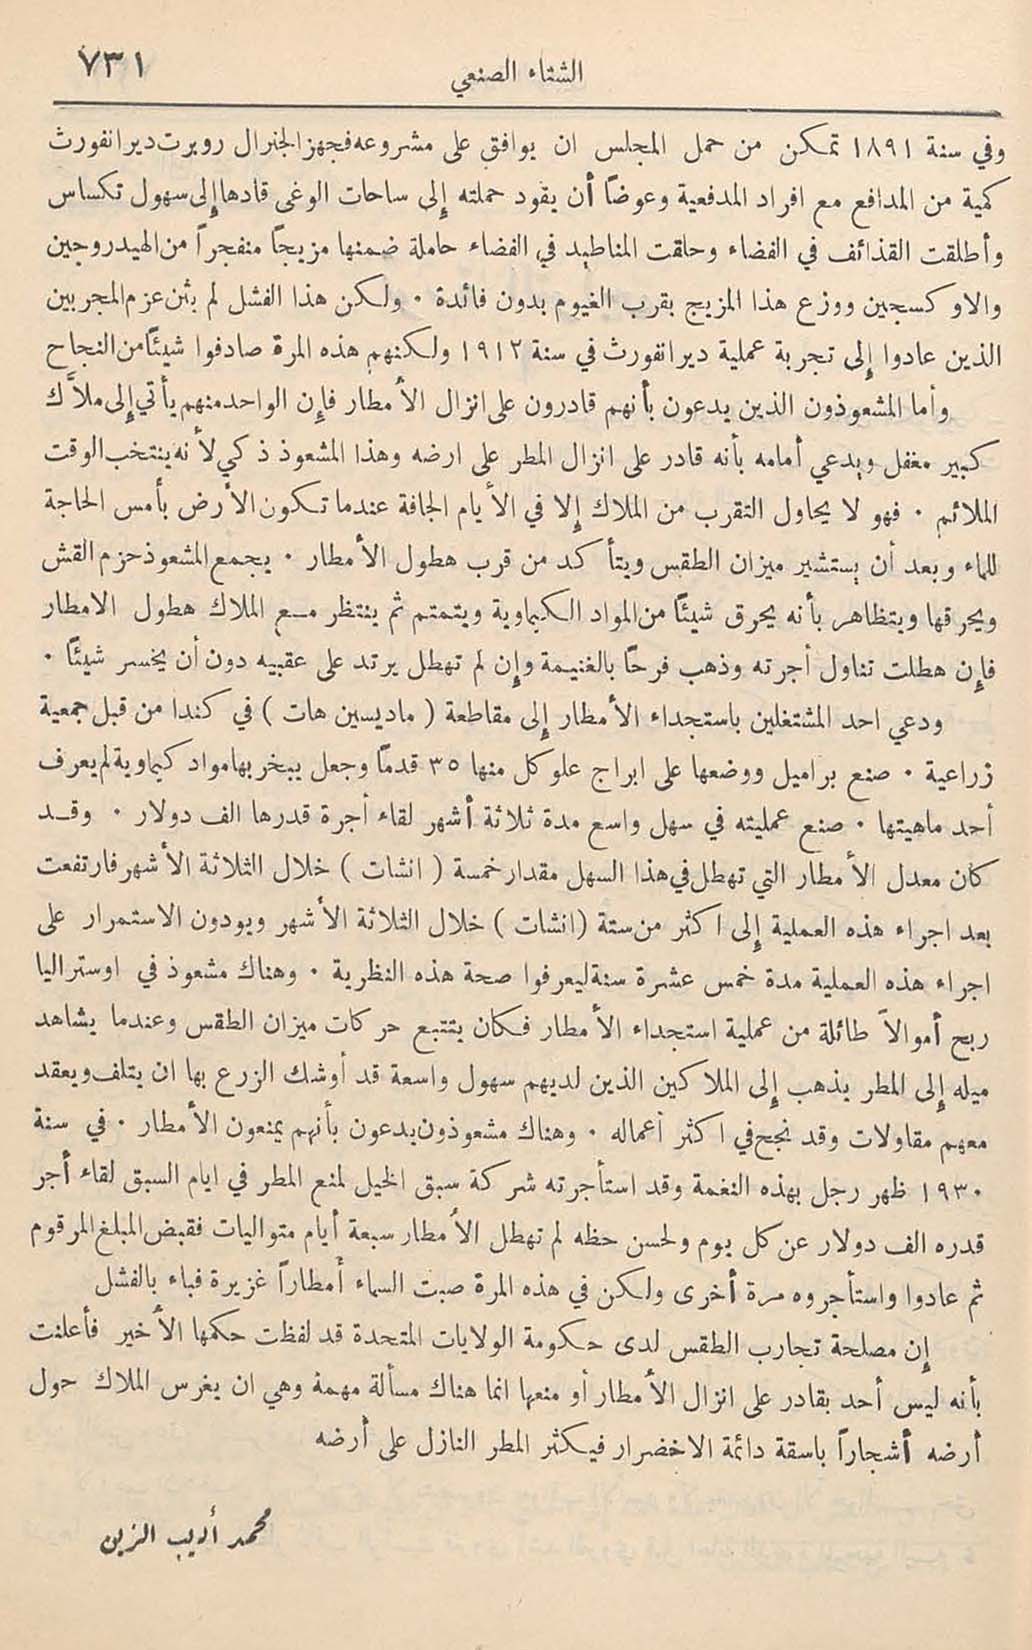 الشتاء الصنعي ٧٣١
وفي سنة ١٨٩١ تمكن من حمل المجلس ان يوافق على مشروعه فجهز الجنرال روبرت ديرانفورث
كمية من المدافع مع افراد المدفعية وعوضاً أن يقود حملته إلى ساحات الوغى قادها إلى سهول تكساس
وأطلقت القذائف في الفضاء وحلقت المناطيد في الفضاء حاملة ضمنها مزيجاً منفجراً من الهيدروجين
والاوكسجين ووزع هذا المزيج بقرب الغيوم بدون فائدة . ولكن هذا الفشل لم يثن عزم المجربين
الذين عادوا إلى تجربة عملية ديرانفورث في سنة ١٩١٢ ولكنهم هذه المرة صادفوا شيئاً من النجاح
وأما المشعوذون الذين يدعون بأنهم قادرون على انزال الأمطار فإن الواحد منهم يأتي إلى ملاَّك
كبير مغفل ويدعي أمامه بأنه قادر على انزال المطر على ارضه وهذا المشعوذ ذكي لأنه ينتخب الوقت
الملائم . فهو لا يحاول التقرب من الملاك إلا في الأيام الجافة عندما تكون الأرض بأمس الحاجة
للماء وبعد أن يستشير ميزان الطقس ويتأكد من قرب هطول الأمطار . يجمع المشعوذ حزم القش
ويحرقها ويتظاهر بأنه يحرق شيئاً من المواد الكيماوية ويتمتم ثم ينتظر مع الملاك هطول الامطار
فإن هطلت تناول أجرته وذهب فرحاً بالغنيمة وإن لم تهطل يرتد على عقبيه دون أن يخسر شيئاً .
ودعي احد المشتغلين باستجداء الأمطار إلى مقاطعة ( ماديسين هات ) في كندا من قبل جمعية
زراعية . صنع براميل ووضعها على ابراج علو كل منها ٣٥ قدماً وجعل يبخر بها مواد كيماوية لم يعرف
أحد ماهيتها . صنع عمليته في سهل واسع مدة ثلاثة أشهر لقاء أجرة قدرها الف دولار . وقد
كان معدل الأمطار التي تهطل في هذا السهل مقدار خمسة ( انشات ) خلال الثلاثة الأشهر فارتفعت
بعد اجراء هذه العملية إلى اكثر من ستة (انشات ) خلال الثلاثة الأشهر ويودون الاستمرار على
اجراء هذه العملية مدة خمس عشرة سنة ليعرفوا صحة هذه النظرية . وهناك مشعوذ في اوستراليا
ربح أموالاً طائلة من عملية استجداء الأمطار فكان يتتبع حركات ميزان الطقس وعندما يشاهد
ميله إلى المطر يذهب إلى الملاكين الذين لديهم سهول واسعة قد أوشك الزرع بها ان يتلف ويعقد
معهم مقاولات وقد نجح في اكثر أعماله . وهناك مشعوذون يدعون بأنهم يمنعون الأمطار . في سنة
١٩٣٠ ظهر رجل بهذه النغمة وقد استأجرته شركة سبق الخيل لمنع المطر في ايام السبق لقاء أجر
قدره الف دولار عن كل يوم ولحسن حظه لم تهطل الأمطار سبعة أيام متواليات فقبض المبلغ المرقوم
ثم عادوا واستأجروه مرة أخرى ولكن في هذه المرة صبت السماء أمطاراً غزيرة فباء بالفشل
إن مصلحة تجارب الطقس لدى حكومة الولايات المتحدة قد لفظت حكمها الأخير فأعلنت
بأنه ليس أحد بقادر على انزال الأمطار أو منعها انما هناك مسألة مهمة وهي ان يغرس الملاك حول
أرضه أشجاراً باسقة دائمة الاخضرار فيكثر المطر النازل على أرضه
محمد أديب الزين